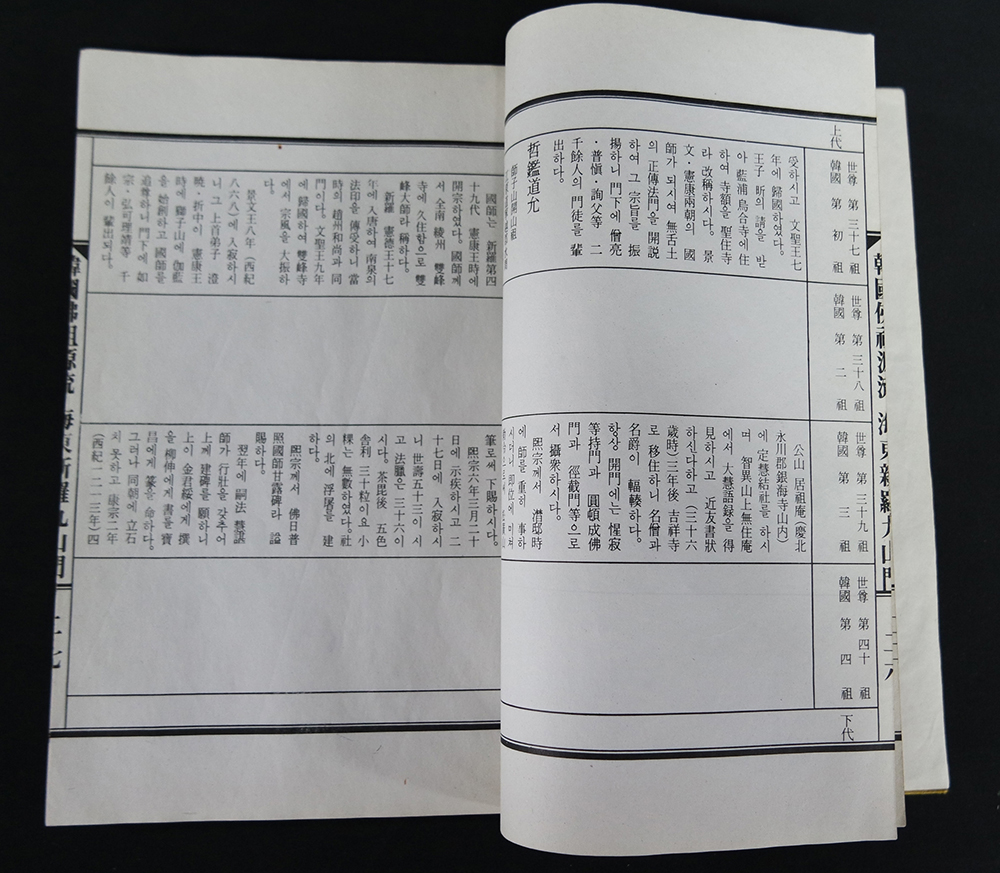 韓國佛祖源流 海東新羅九山門
上代
世尊 第 三十七 祖
韓國 第 初 祖
受하시고 文聖王七
年에 歸國하였다。
王子 昕의 請을 받
아 藍浦 烏合寺에 住
하여 寺額을 聖住寺
라 改稱하시다。 景
文・憲康兩朝의 國
師가 되시여 無舌土
의 正傳法門을 開説
하여 그 宗旨를 振
揚하니 門下에 僧亮
・普愼・詢父等 二
千餘人의 門徒를 輩
出하다。
哲鑑道允
師子山開山祖
世尊 第 三十八 祖
韓國 第 二 祖
世尊 第 三十九 祖
韓國 第 三 祖
公山 居祖庵(慶北
永川郡銀海寺山內)
에 定慧結社를 하시
며 智異山上無住庵
에서 大慧語録을 得
見하시고 近友書狀
하신다하고 (三十六
歲時) 三年後 吉祥寺
로 移住하니 名僧과
名爵이 輻輳하다。
항상 開門에는 惺寂
等持門과 圓頓成佛
門과 徑截門等으로
서 攝衆하시다。
熙宗께서 潛邸時
에 師를 重히 事하
시러니 即位에 미쳐
世尊 第 四十 祖
韓國 第 四 祖
下代
國師는 新羅第四
十九代 憲康王時에
開宗하였다。 國師께
서 全南 綾州 雙峰
寺에 久住함으로 雙
峰大師라 稱하다。
新羅 憲德王十七
年에 入唐하여 南泉의
法印을 傳受하니 當
時의 趙州和尚과 同
門이다。 文聖王九年
에 歸國하여 雙峰寺
에서 宗風을 大振하
다。
景文王八年 (西紀
八六八)에 入寂하시
니 그 上首弟子 澄
曉・折中이 憲康王
時에 獅子山에 伽藍
을 始創하고 國師를
追尊하니 門下에 如
宗・弘可理靖等 千
餘人이 輩出되다。
筆로써 下賜하시다。
熙宗六年三月二十
日에 示疾하시고 二
十七日에 入寂하시
니 世壽五十三이시
고 法臘은 三十六이
시다。 茶毘後 五色
舍利 三十粒이요 小
粿는 無數하였다。社
의 北에 浮屠를 建
하다。
熙宗께서 佛日普
照國師甘露碑라 謚
賜하다。
翌年에 嗣法 慧諶
師가 行壯을 갖추어
上께 建碑를 願하니
上이 金君綏에게 撰
을 柳伸에게 書를 寶
昌에게 篆을 命하다。
그러나 同朝에 立石
치 못하고 康宗二年
(西紀一二一三年四
韓國佛祖源流 海東新羅九山門 二七